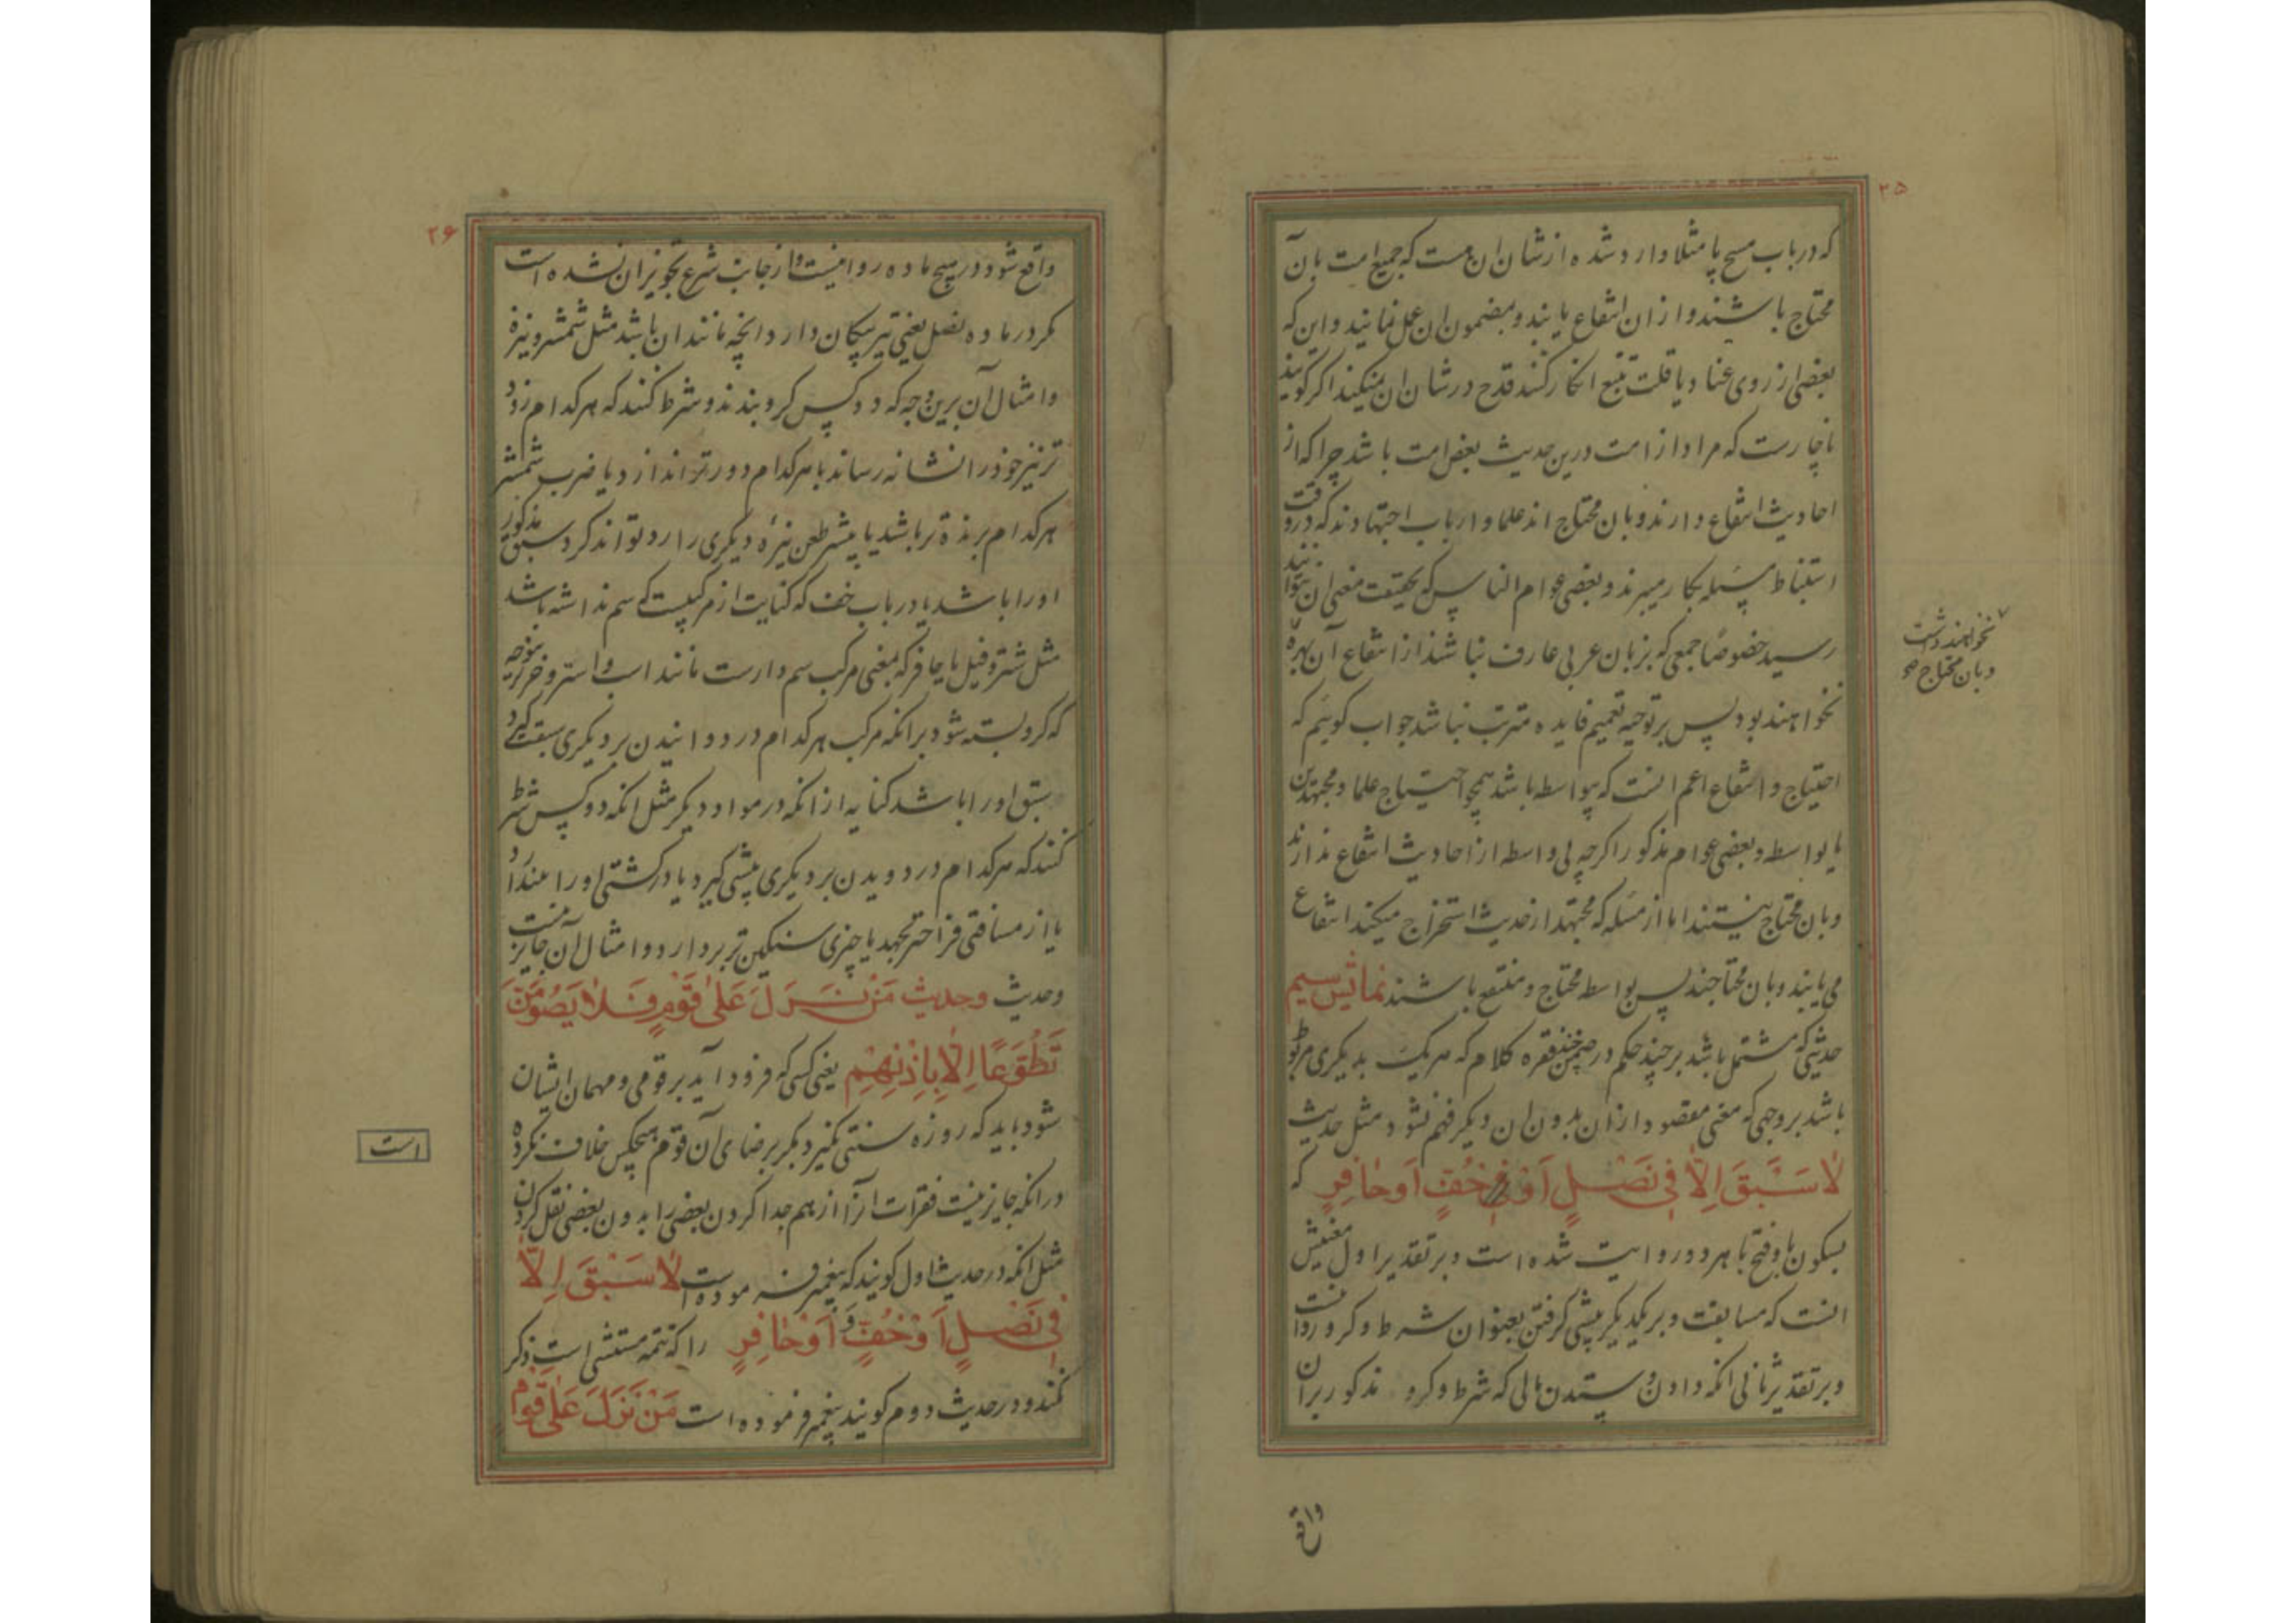 ۲۵
که در باب مسح پا مثلا وارد شده از شان ان هست که جمیع امت بان
محتاج باشند و از ان انتفاع یابند و بمضمون ان عمل نمایند و این که
بعضی از روی عناد یا قلت تتبع انکار کنند قدح در شان ان نمیکند اکر کویند
ناچارست که مراد از امت درین حدیث بعض امت باشد چرا که از
احادیث انتفاع دارند و بان محتاج اند علما و ارباب اجتهادند که در وقت
استنباط مسئله بکار میبرند و بعضی عوام الناس که بحقیقت معنی ان نتوانند
رسید خصوصًا جمعی که بزبان عربی عارف نباشند از انتفاع آن بهره
نخواهند بود پس بر توجیه تعمیم فایده مترتب نباشد جواب کوئیم که
احتیاج و انتفاع اعم انست که بیواسطه باشد همچو احتیاج علما و مجتهدین
یا بواسطه و بعضی عوام مذکور اکرچه بی واسطه از احادیث انتفاع ندارند
و بان محتاج نیستند اما از مسئله که مجتهد از حدیث استخراج میکند انتفاع
می یابند و بان محتاجند پس بواسطه محتاج و منتفع باشند
حدیثی که مشتمل باشد بر چند حکم در ضمن چند فقره کلام که هر یک بدیکری مربوط
باشد بر وجهی که معنی مقصود از ان بدون ان دیکر فهم نشود مثل حدیث
لا سَبَقَ اِلّا فی نَصْلٍ اَوْ خُفٍّ اَوْ حافِرٍ که
بسکون با و فتح با هر دو روایت شده است و بر تقدیر اول معنیش
انست که مسابقت و بر یکدیکر پیشی کرفتن بعنوان شرط و کرو روا نیست
و بر تقدیر ثانی انکه دادن و ستدن مالی که شرط و کرو مذکور بران
نخواهند داشت
و بان محتاج
واقع
۲۶
واقع شود در هیچ ماده روا نیست و از جانب شرع تجویز ان نشده است
مکر در ماده نصل یعنی تیر پیکان دار و انچه مانند ان باشد مثل شمشیر و نیزه
و امثال آن برین وجه که دو کس کرو بندند و شرط کنند که هر کدام زود
تر تیر خود را نشانه رساند یا هر کدام دورتر اندازد یا ضرب شمشیر
هر کدام برنده تر باشد یا پیشتر طعن نیزه دیکری را رد تواند کرد سبق مذکور
او را باشد یا در باب خف که کنایت از مرکبیست که سم نداشته باشد
مثل شتر و فیل یا حافر که بمعنی مرکب سم دارست مانند اسب و استر و خر
که کرو بسته شود بر انکه مرکب هر کدام در دوانیدن بر دیکری سبقت کیرد
سبق او را باشد کنایه از انکه در مواد دیکر مثل انکه دو کس شرط
کنند که هر کدام در دویدن بر دیکری پیشی کیرد یا در کشتی او را بیندازد
یا از مسافتی فراختر بجهد یا چیزی سنکین تر بردارد و امثال آن جایز نیست
و حدیث وحدیث مَنْ نَزَلَ عَلی قَوْمٍ فَلا یَصُومَنَّ
تَطَوُّعًا اِلّا بِاِذْنِهِم یعنی کسی که فرود آید بر قومی و مهمان ایشان
شود باید که روزه سنتی نکیرد مکر برضای آن قوم هیچکس خلاف نکرده
است
در انکه جایز نیست فقرات انرا از هم جدا کردن بعضی را بدون بعضی نقل کردن
مثل انکه در حدیث اول کویند که پیغمبر فرموده است لا سَبَقَ اِلّا
فی نَصْلٍ اَوْ خُفٍّ اَوْ حافِرٍ را که تتمه مستثنی است ذکر
نکنند و در حدیث دوم کویند پیغمبر فرموده است مَنْ نَزَلَ عَلی قَوْم